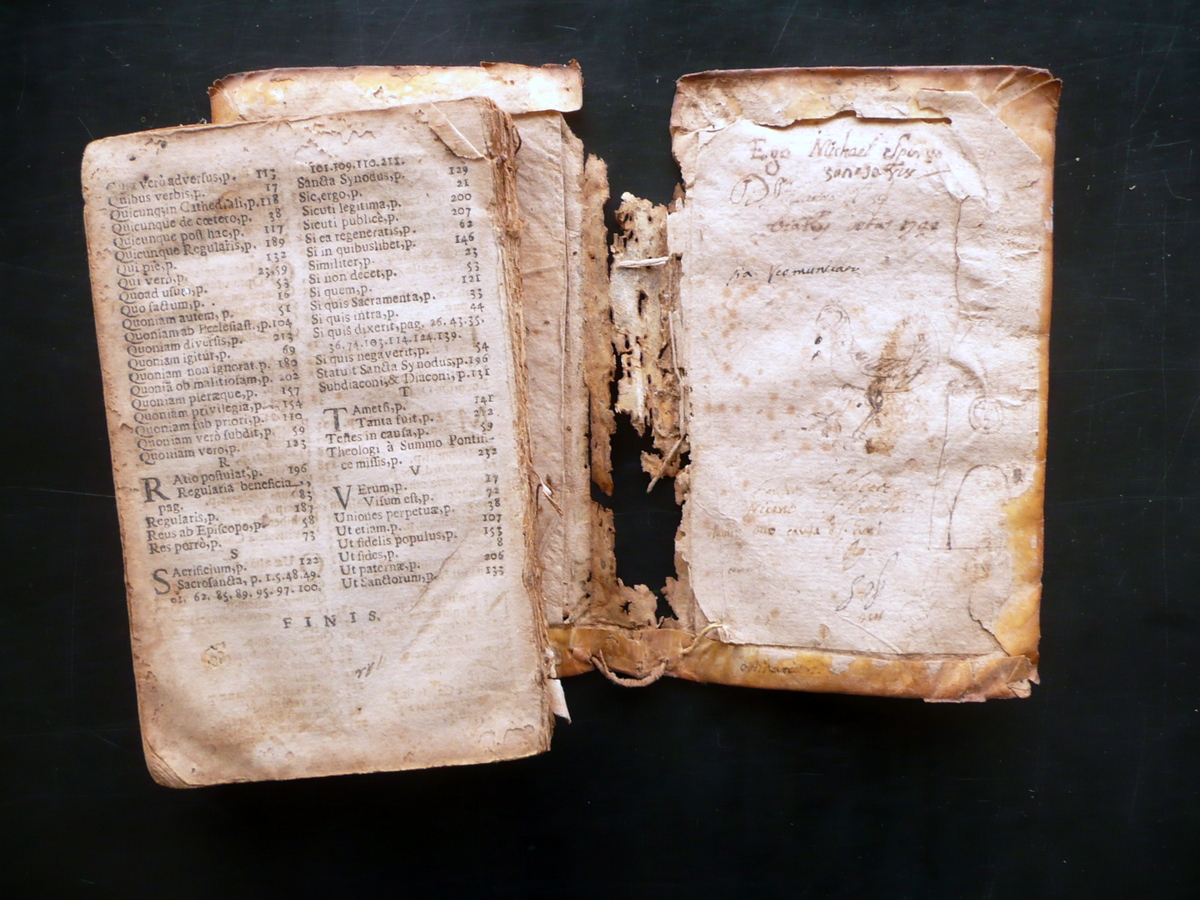 verò adversus, p. 113
Quibus verbis, p. 17
Quicunq; in Cathed ali, p. 118
Quicunque de cœtero, p. 38
Quicunque post hac, p. 117
Quicunque Regularis, p. 189
Qui pie, p. 132
Qui verò, p. 23, 59
Quoad usus, p. 53
Quo factum, p. 16
Quoniam autem, p. 51
Quoniam ab Ecclesiast., p. 104
Quoniam diversis, p. 213
Quoniam igitur, p. 69
Quoniam non ignorat p. 180
Quoniã ob malitiosam, p. 202
Quoniam pleræque, p. 157
Quoniam privilegia, p. 154
Quoniam sub priori, p. 110
Quoniam verò subdit, p. 59
Quoniam vero, p. 123
R
RAtio postulat, p. 196
Regularia beneficia
pag. 83
Regularis, p. 187
Reus ab Episcopo, p. 58
Res porrò, p. 73
S
SAcrificium, p. 122
Sacrosancta, p. 1. 5. 48. 49.
62. 85. 89. 95. 97. 100.
101. 109. 110. 211.
Sancta Synodus, p. 129
Sic, ergo, p. 21
Sicuti legitima, p. 200
Sicuti publicè, p. 207
Si ea regeneratis, p. 62
Si in quibuslibet, p. 146
Similiter, p. 23
Si non decet, p. 53
Si quem, p. 121
Si quis Sacramenta, p. 33
Si quis intra, p. 44
Si quis dixerit, pag. 26. 43. 35.
36. 74. 103. 114. 124. 139.
Si quis negaverit, p. 54
Statuit Sancta Synodus, p. 196
Subdiaconi, & Diaconi, p. 131
T
TAmetsi, p. 141
Tanta fuit, p. 212
Testes in causa, p. 59
Theologi à Summo Pontifi-
ce missis, p. 232
V
VErum, p. 17
Visum est, p. 72
Uniones perpetuæ, p. 38
Ut etiam, p. 107
Ut fidelis populus, p. 153
Ut fides, p. 8
Ut paternæ, p. 206
Ut Sanctorum, p. 133
FINIS.
Ego Michael